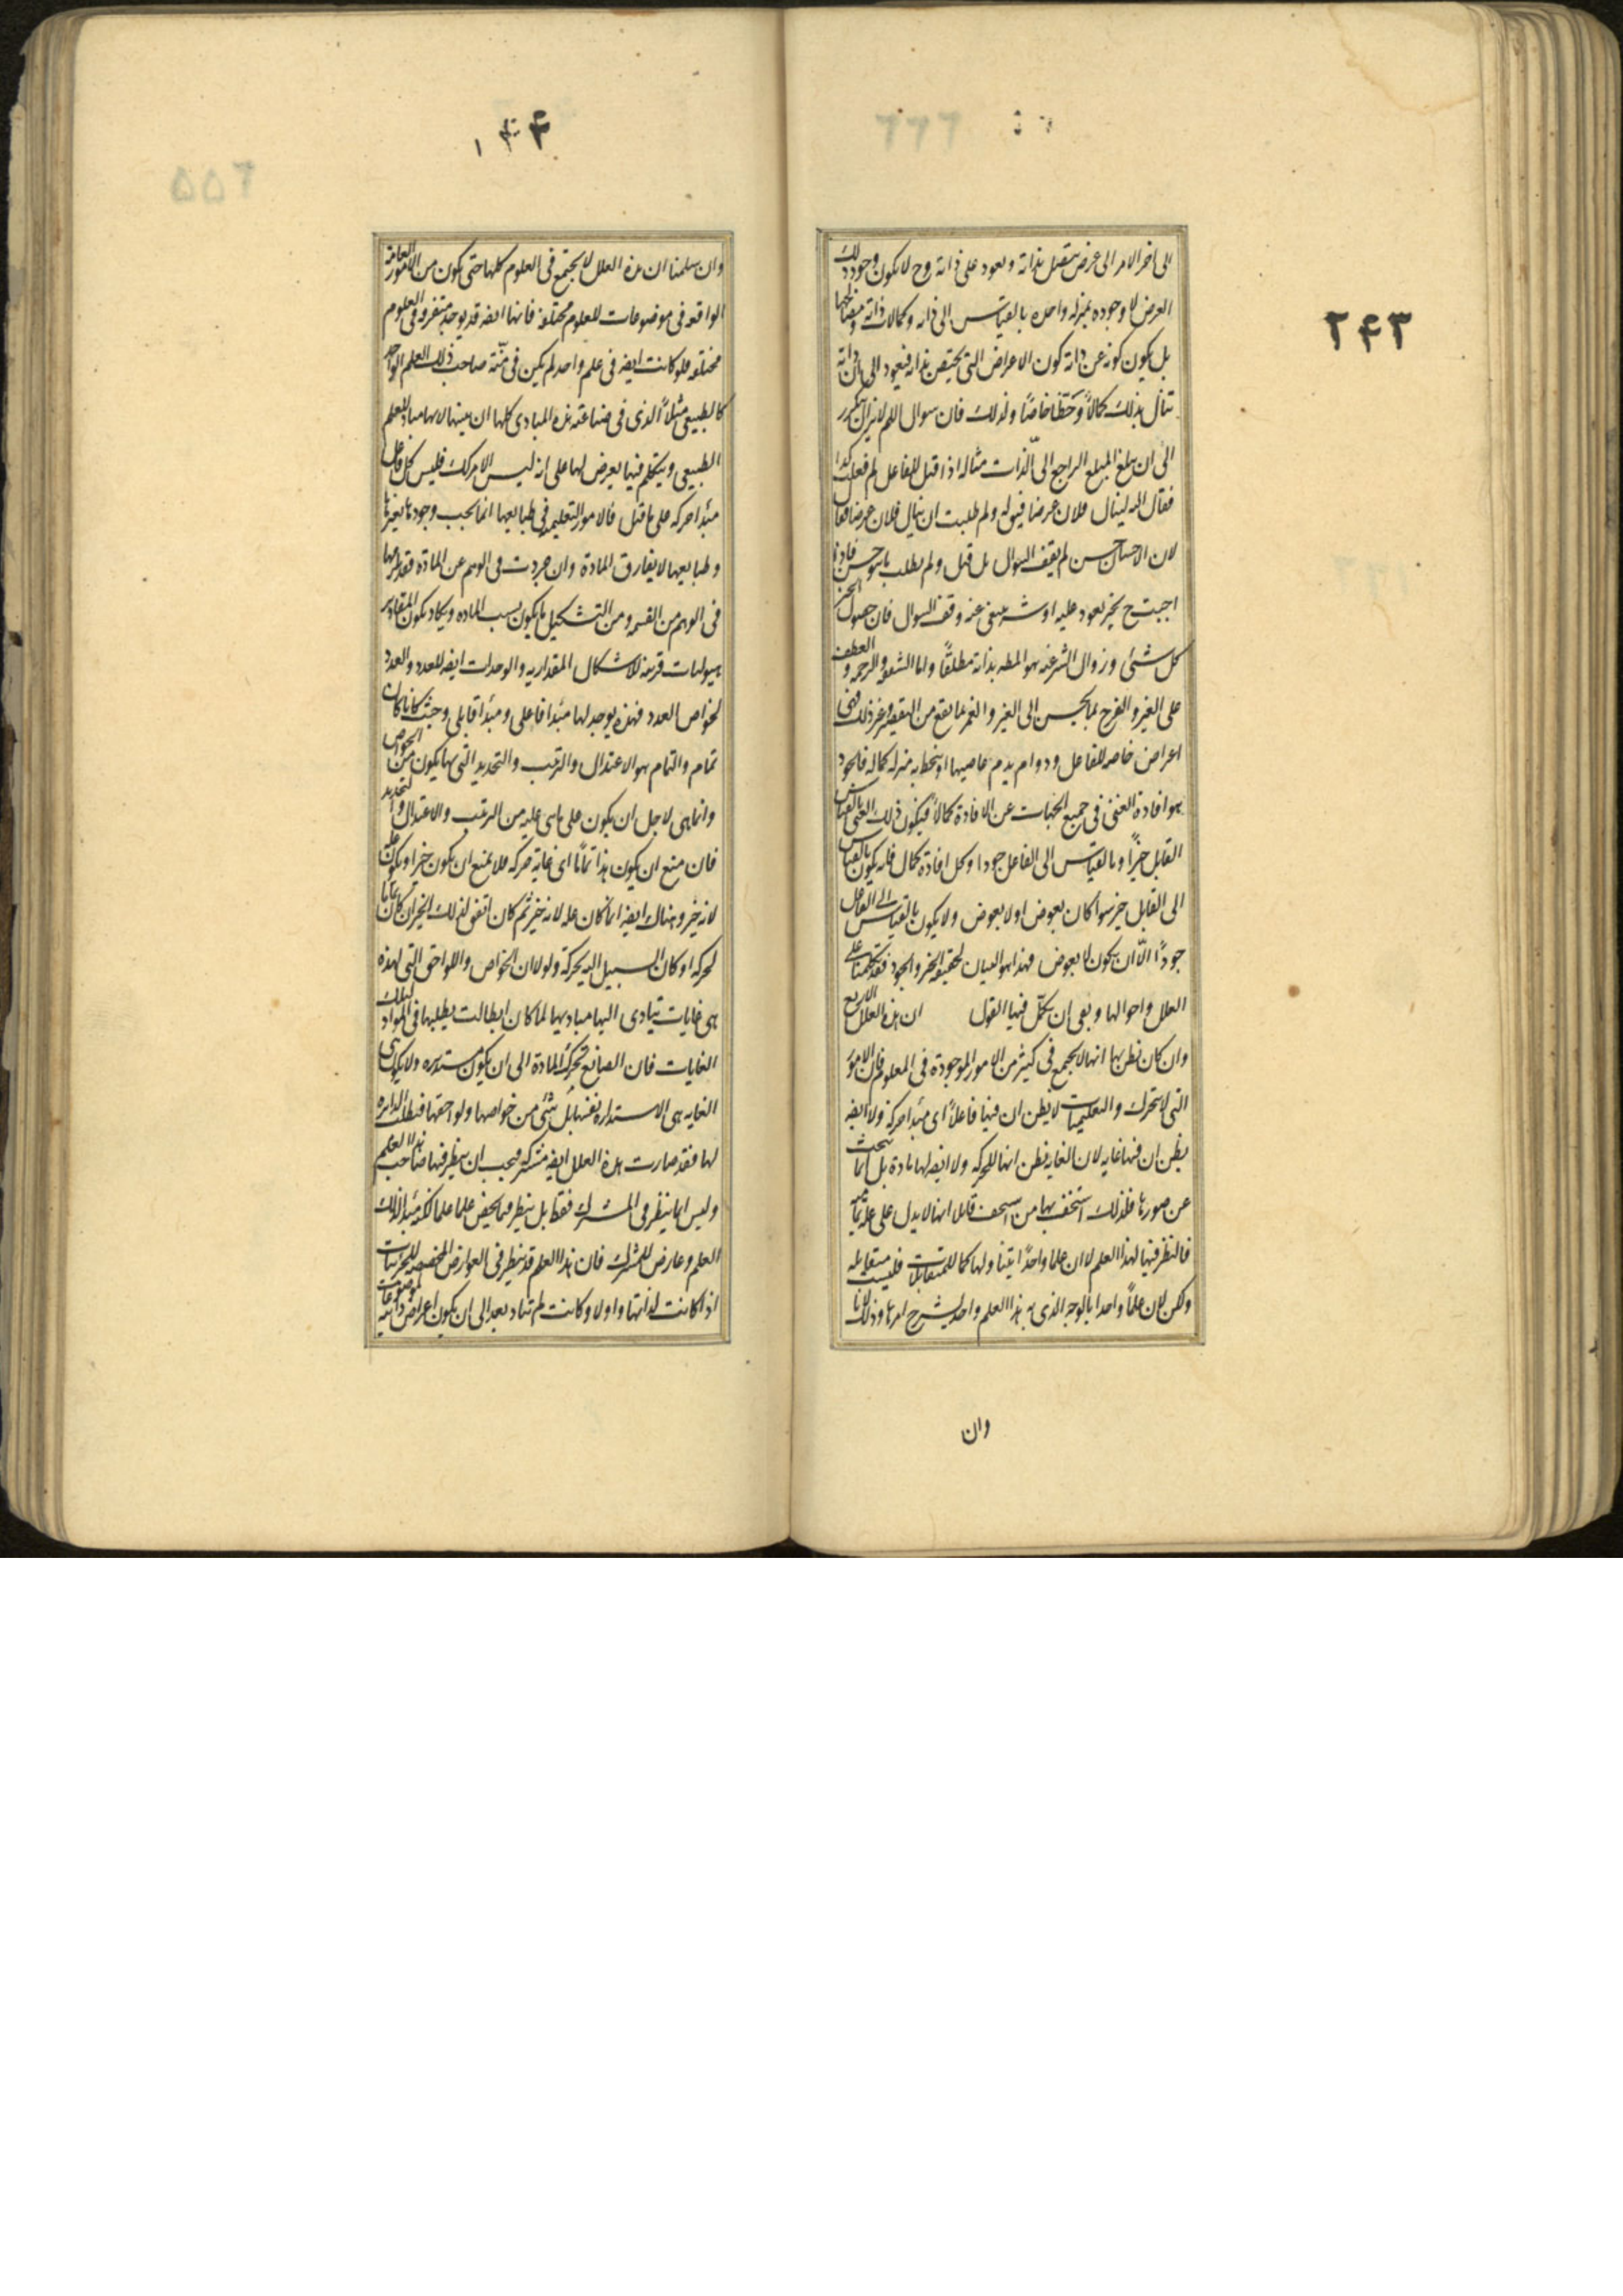 ۲۴۳
الى اخر الامر الى غرض يتصل بذاته ويعود على ذاته وح لا يكون وجود ذلك
الغرض ولا وجوده بمنزلة واحدة بالقياس الى ذاته وكمالات ذاته ومصالحها
بل يكون كونه عن ذاته كون الاعراض التى يختص بذاته فيعود الى ان ذاته
تنال بذلك كمالاً وحظا خاصًا ولذلك فان سوال اللم لا يزال يتكرر
الى ان يبلغ المبلغ الراجع الى الذات مثاله اذا قيل للفاعل لم فعلت كذا
فقال لينال فلان غرضا فيق له ولم طلبت ان ينال فلان غرضا فقال
لان الاحسان حسن لم يقف السوال بل قيل ولم يطلب ما هو حسن فاذا
اجيب ح بخير يعود عليه او شر ينفى عنه وقف السوال فان حصول الخير
كل شئى وزوال الشر عنه هو المط بذاته مطلقًا واما الشفقه والرحمه والعطف
على الغير والفرح بما يحسن الى الغير والغم بما يقع من التقصير وغير ذلك فهى
اعراض خاصه للفاعل ودوام يذم عاصيها او ينحط به منزله كماله فالجود
هو افادة الغير فى جميع الجهات عن الافادة كمالاً فيكون ذلك الغير بالقياس
القابل خيرًا وبالقياس الى الفاعل جودا وكل افادة كمال فانه يكون بالقياس
الى القابل خير سوا كان بعوض اولا بعوض ولا يكون بالقياس الى الفاعل
جودًا الّا ان يكون لا بعوض فهذا هو البيان لحقيقة الخير والجود فقد تكلمنا على
العلل واحوالها وبقى ان يكمّل فيها القول ان هذه العلل الاربع
وان كان نظن بها انها لا تجتمع فى كثير من الامور الموجودة فى العلوم فان الامور
التى لا تتحرك والتعليميات لا يظن ان فيها فاعلاً اى مبدا حركة ولا ايضه
يظن ان فيها غايه لان الغايه فيظن انها للحركه ولا ايضه لها مادة بل انما يبحث
عن صورها فلذلك استخف بها من استخف قايلا انها لا يدل على علة تماميه
فالنظر فيها لهذا العلم لا ان علما واحدًا يتناولها كما للمتقابلات فليست متقابله
ولكن لان علماً واحدا بالوجه الذى به هذا العلم واحد يشرح امرها وذلك لانا
وان
۱۳۴
وان سلمنا ان هذه العلل لا يجتمع فى العلوم كلها حتى يكون من الامور العامه
الواقعه فى موضوعات للعلوم مختلفه فانها ايضه قد يوجد متفرقه فى العلوم
مختلفه فلو كانت ايضه فى علم واحد لم يكن فى منّة صاحب ذلك العلم الواحد
كالطبيعى مثلاً الذى فى صناعته هذه المبادى كلها ان يبينها لانها مبادى للعلم
الطبيعى ويتكلم فيما يعرض لها على انه ليس الامر كك فليس كل فاعل
مبدا حركه على ما قيل فالامور التعليميه فى طبايعها انما يجب وجودها بغيرها
وطبايعها لا يفارق المادة وان جردت فى الوهم عن المادّة فقد يلزمها
فى الوهم من القسمه ومن التشكيل ما يكون بسبب الماده ويكاد يكون المقادير
هيوليات قريبه للاشكال المقداريه والوحدات ايضه للعدد والعدد
لخواص العدد فهذه يوجد لها مبدا فاعلى ومبدأ قابلى وحيث كانا كان
تمام والتمام هو الاعتدال والترتيب والتحديد التى بها يكون من الخواص
وانما هى لاجل ان يكون على ما هى عليه من الترتيب والاعتدال والتحديد
فان منع ان يكون هذا تمامًا اى غاية حركه فلا يمنع ان يكون خيرا ويكون عله
لانه خير وهناك ايضه انما كان عله لانه خير ثم كان اتفق لذلك الخير ان كان تماما
لحركه اذ كان السبيل اليه بحركة ولولا ان الخواص واللواحق التى لهذه
هى غايات يتادى اليها مباديها لما كان الطالب يطلبها فى المواد لتلك
الغايات فان الصانع يحرك المادة الى ان يكون مستديره ولا يكون
الغايه هى الاستداره نفسها بل شئى من خواصها ولواحقها فيطلب الدايره
لها فقد صارت هذه العلل ايضه مشتركه فيجب ان ينظر فيها صاحب هذا العلم
وليس انما ينظر فى المشترك فقط بل ينظر فيما يخص علما علما لكنه مبدا لذلك
العلم وعارض للمشترك فان هذا العلم قد ينظر فى العوارض المخصصه للجزئيات
اذا كانت لذاتها واولا وكانت لم تتاد بعد الى ان يكون اعراض ذاتيه لموضوعات